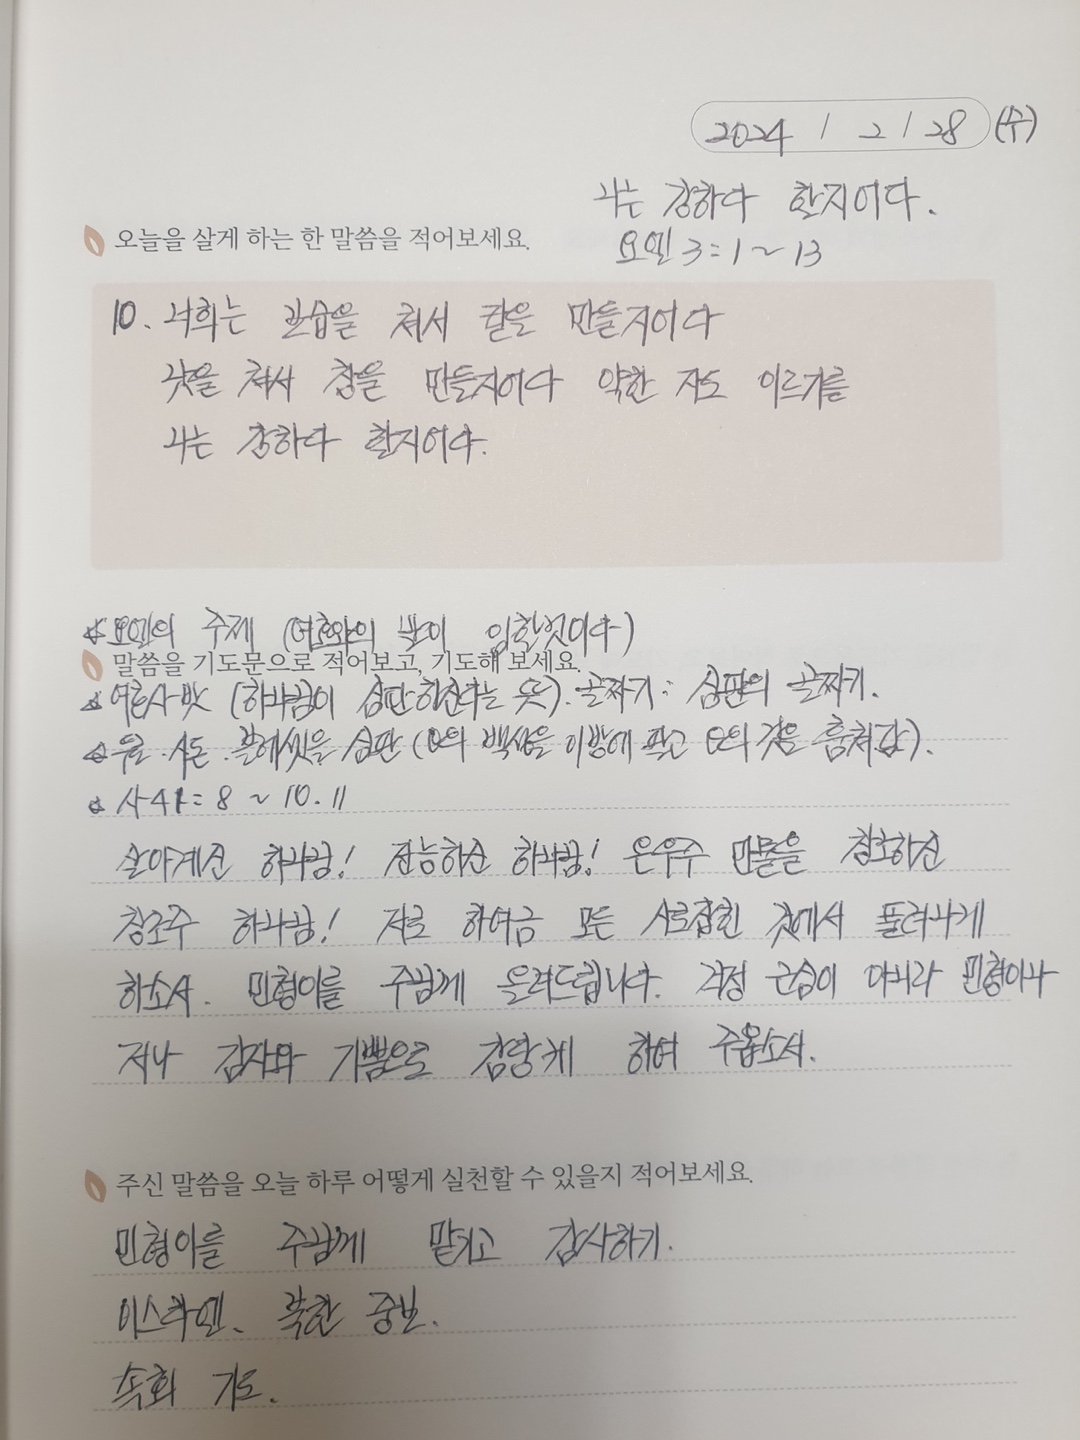 2024 / 2 / 28 (수)
나는 강하다 할지어다.
오늘을 살게 하는 한 말씀을 적어보세요.
요엘 3:1~13
10. 너희는 보습을 쳐서 칼을 만들지어다
낫을 쳐서 창을 만들지어다 약한 자도 이르기를
나는 강하다 할지어다.
☆요엘의 주제 (여호와의 날이 임한것이다)
말씀을 기도문으로 적어보고, 기도해 보세요.
☆여호사밧 (하나님이 심판하신다는 뜻). 골짜기: 심판의 골짜기.
☆두로.시돈.블레셋을 심판 (의 백성을 이방에 팔고 의 것을 훔쳐감).
☆사41:8~10.11
살아계신 하나님! 전능하신 하나님! 온우주 만물을 창조하신
창조주 하나님! 저로 하여금 모든 사로잡힌 것에서 풀려나게
하소서. 민형이를 주님께 올려드립니다. 걱정 근심이 아니라 민형이나
저나 감사와 기쁨으로 감당케 하여 주옵소서.
주신 말씀을 오늘 하루 어떻게 실천할 수 있을지 적어보세요.
민형이를 주님께 맡기고 감사하기.
이스라엘, 북한 중보.
속회 기도.